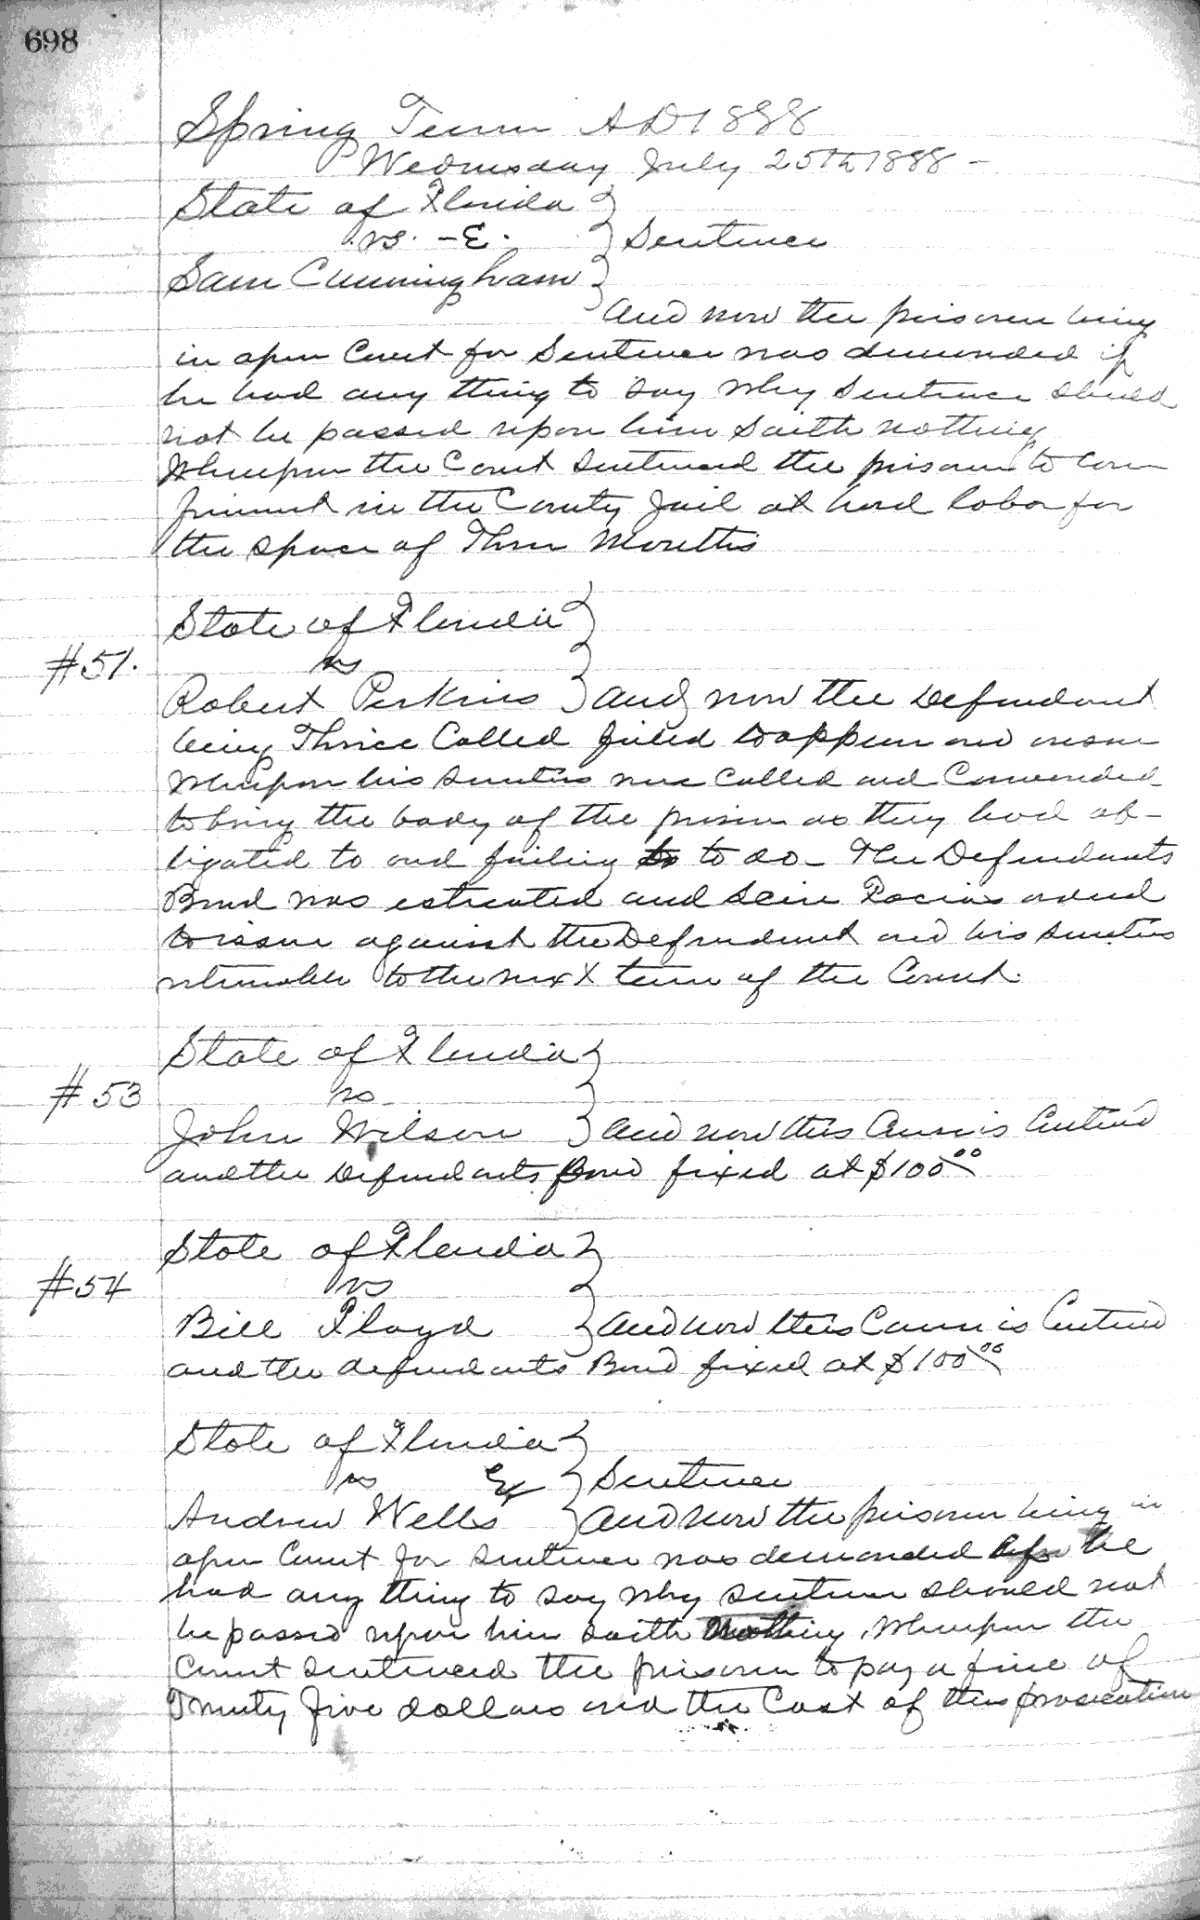 698
Spring Term AD 1888
Wednesday July 25th 1888 -
State of Florida
vs. - E. Sentence
Sam Cunningham
And now the prisoner being
in open Court for Sentence was demanded if
he had any thing to say why Sentence should
not be passed upon him Saith nothing
Whereupon the Court Sentenced the prisoner to con
finement in the County Jail at hard labor for
the space of Three Months
State of Florida
#51. vs
Robert Perkins and now the Defendant
being Thrice Called failed to appear and
Whereupon his sureties were Called and Commanded
to bring the body of the prisoner as they had ob-
ligated to and failing to to do - The Defendants
Bond was estreated and Scire Facias ordered
to issue against the Defendant and his sureties
returnable to the next term of the Court.
State of Florida
#53 vs
John Wilson and now this Cause is Continued
and the Defendants Bond fixed at $100.00
State of Florida
#54 vs
Bill Floyd and now this Cause is Continued
and the defendants Bond fixed at $100.00
State of Florida
vs Sentence
Andrew Wells and now the prisoner being in
open Court for sentence was demanded he
had any thing to say why sentence should not
be passed upon him saith Nothing, Whereupon the
Court sentenced the prisoner to pay a fine of
Twenty five dollars and the Cost of this prosecution